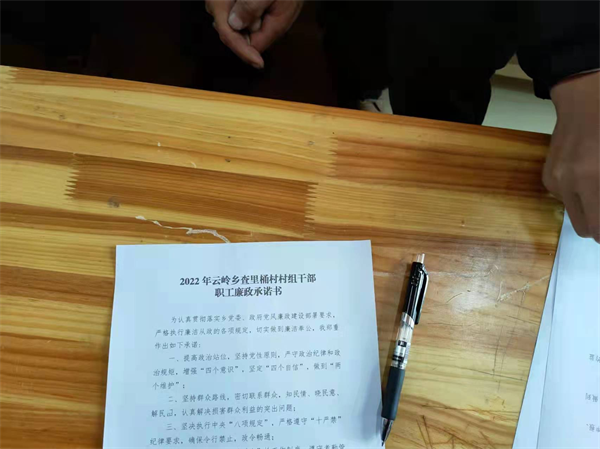 2022 年云岭乡查里桶村村组干部
职工廉政承诺书
为认真贯彻落实乡党委、政府党风廉政建设部署要求，
严格执行廉洁从政的各项规定，切实做到廉洁奉公，我郑重
作出如下承诺：
一、提高政治站位，坚持党性原则，严守政治纪律和政
治规矩，增强“四个意识”，坚定“四个自信”，做到“两
个维护”；
二、坚持群众路线，密切联系群众，知民情、晓民意、
解民忧，认真解决损害群众利益的突出问题；
三、坚决执行中央“八项规定”，严格遵守“十严禁”
纪律要求，确保令行禁止，政令畅通；